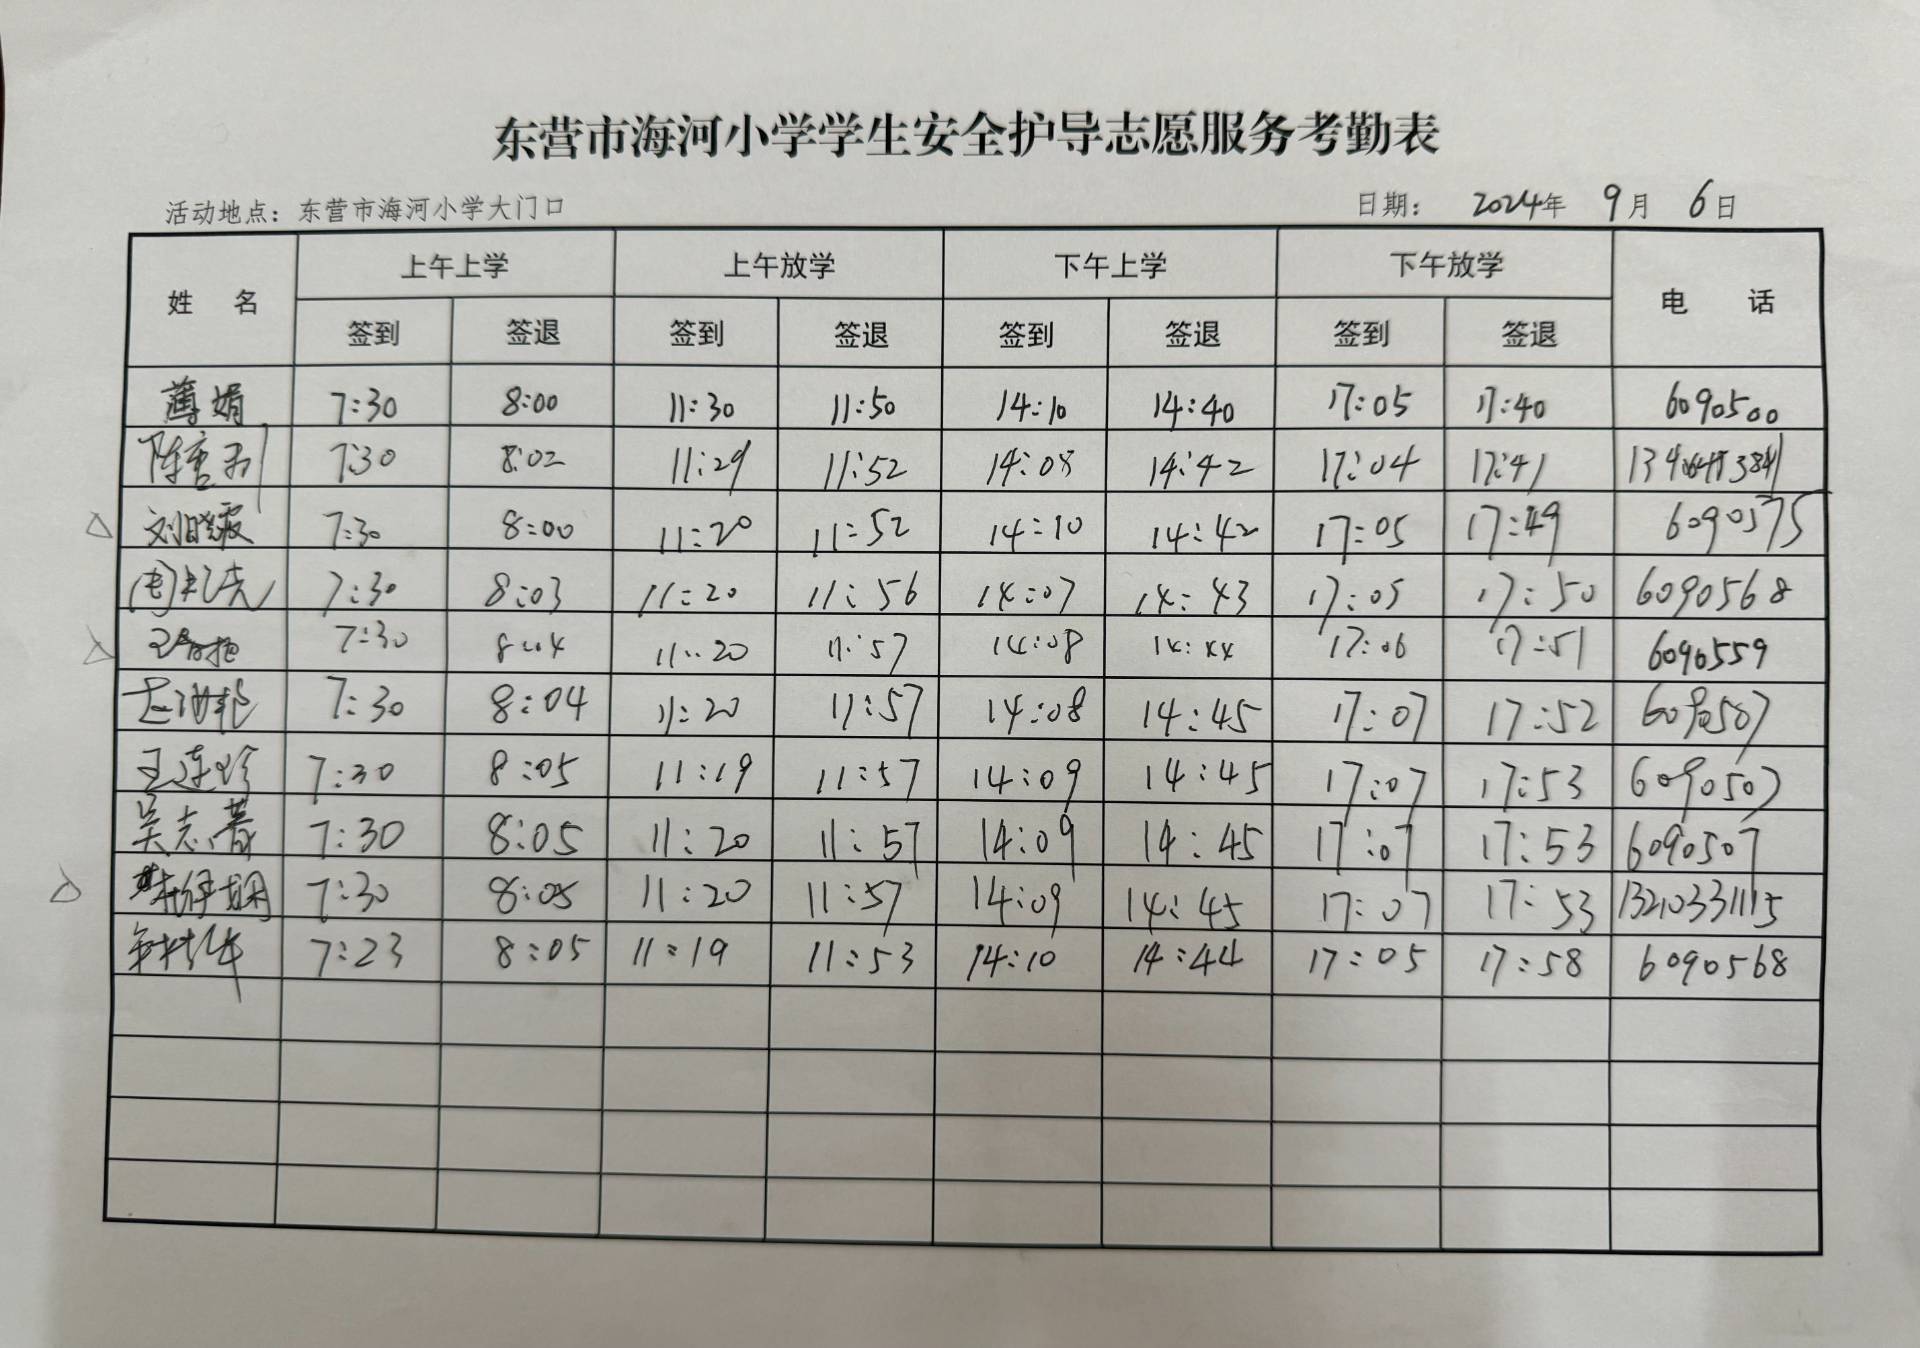 东营市海河小学学生安全护导志愿服务考勤表
活动地点：东营市海河小学大门口 日期： 2024年 9月 6日
姓 名 上午上学 上午放学 下午上学 下午放学 电 话
签到 签退 签到 签退 签到 签退 签到 签退
薄娟 7:30 8:00 11:30 11:50 14:10 14:40 17:05 17:40 6090500
7:30 8:02 11:29 11:52 14:08 14:42 17:04 17:41
刘晓霞 7:30 8:00 11:20 11:52 14:10 14:42 17:05 17:49 6090575
7:30 8:03 11:20 11:56 14:07 14:43 17:05 17:50 6090568
7:30 8:04 11:20 11:57 14:08 14:44 17:06 17:51 6090559
7:30 8:04 11:20 11:57 14:08 14:45 17:07 17:52 6090587
王连珍 7:30 8:05 11:19 11:57 14:09 14:45 17:07 17:53 6090507
吴志蓉 7:30 8:05 11:20 11:57 14:09 14:45 17:07 17:53 6090507
7:30 8:05 11:20 11:57 14:09 14:45 17:07 17:53 13210331115
7:23 8:05 11:19 11:53 14:10 14:44 17:05 17:58 6090568